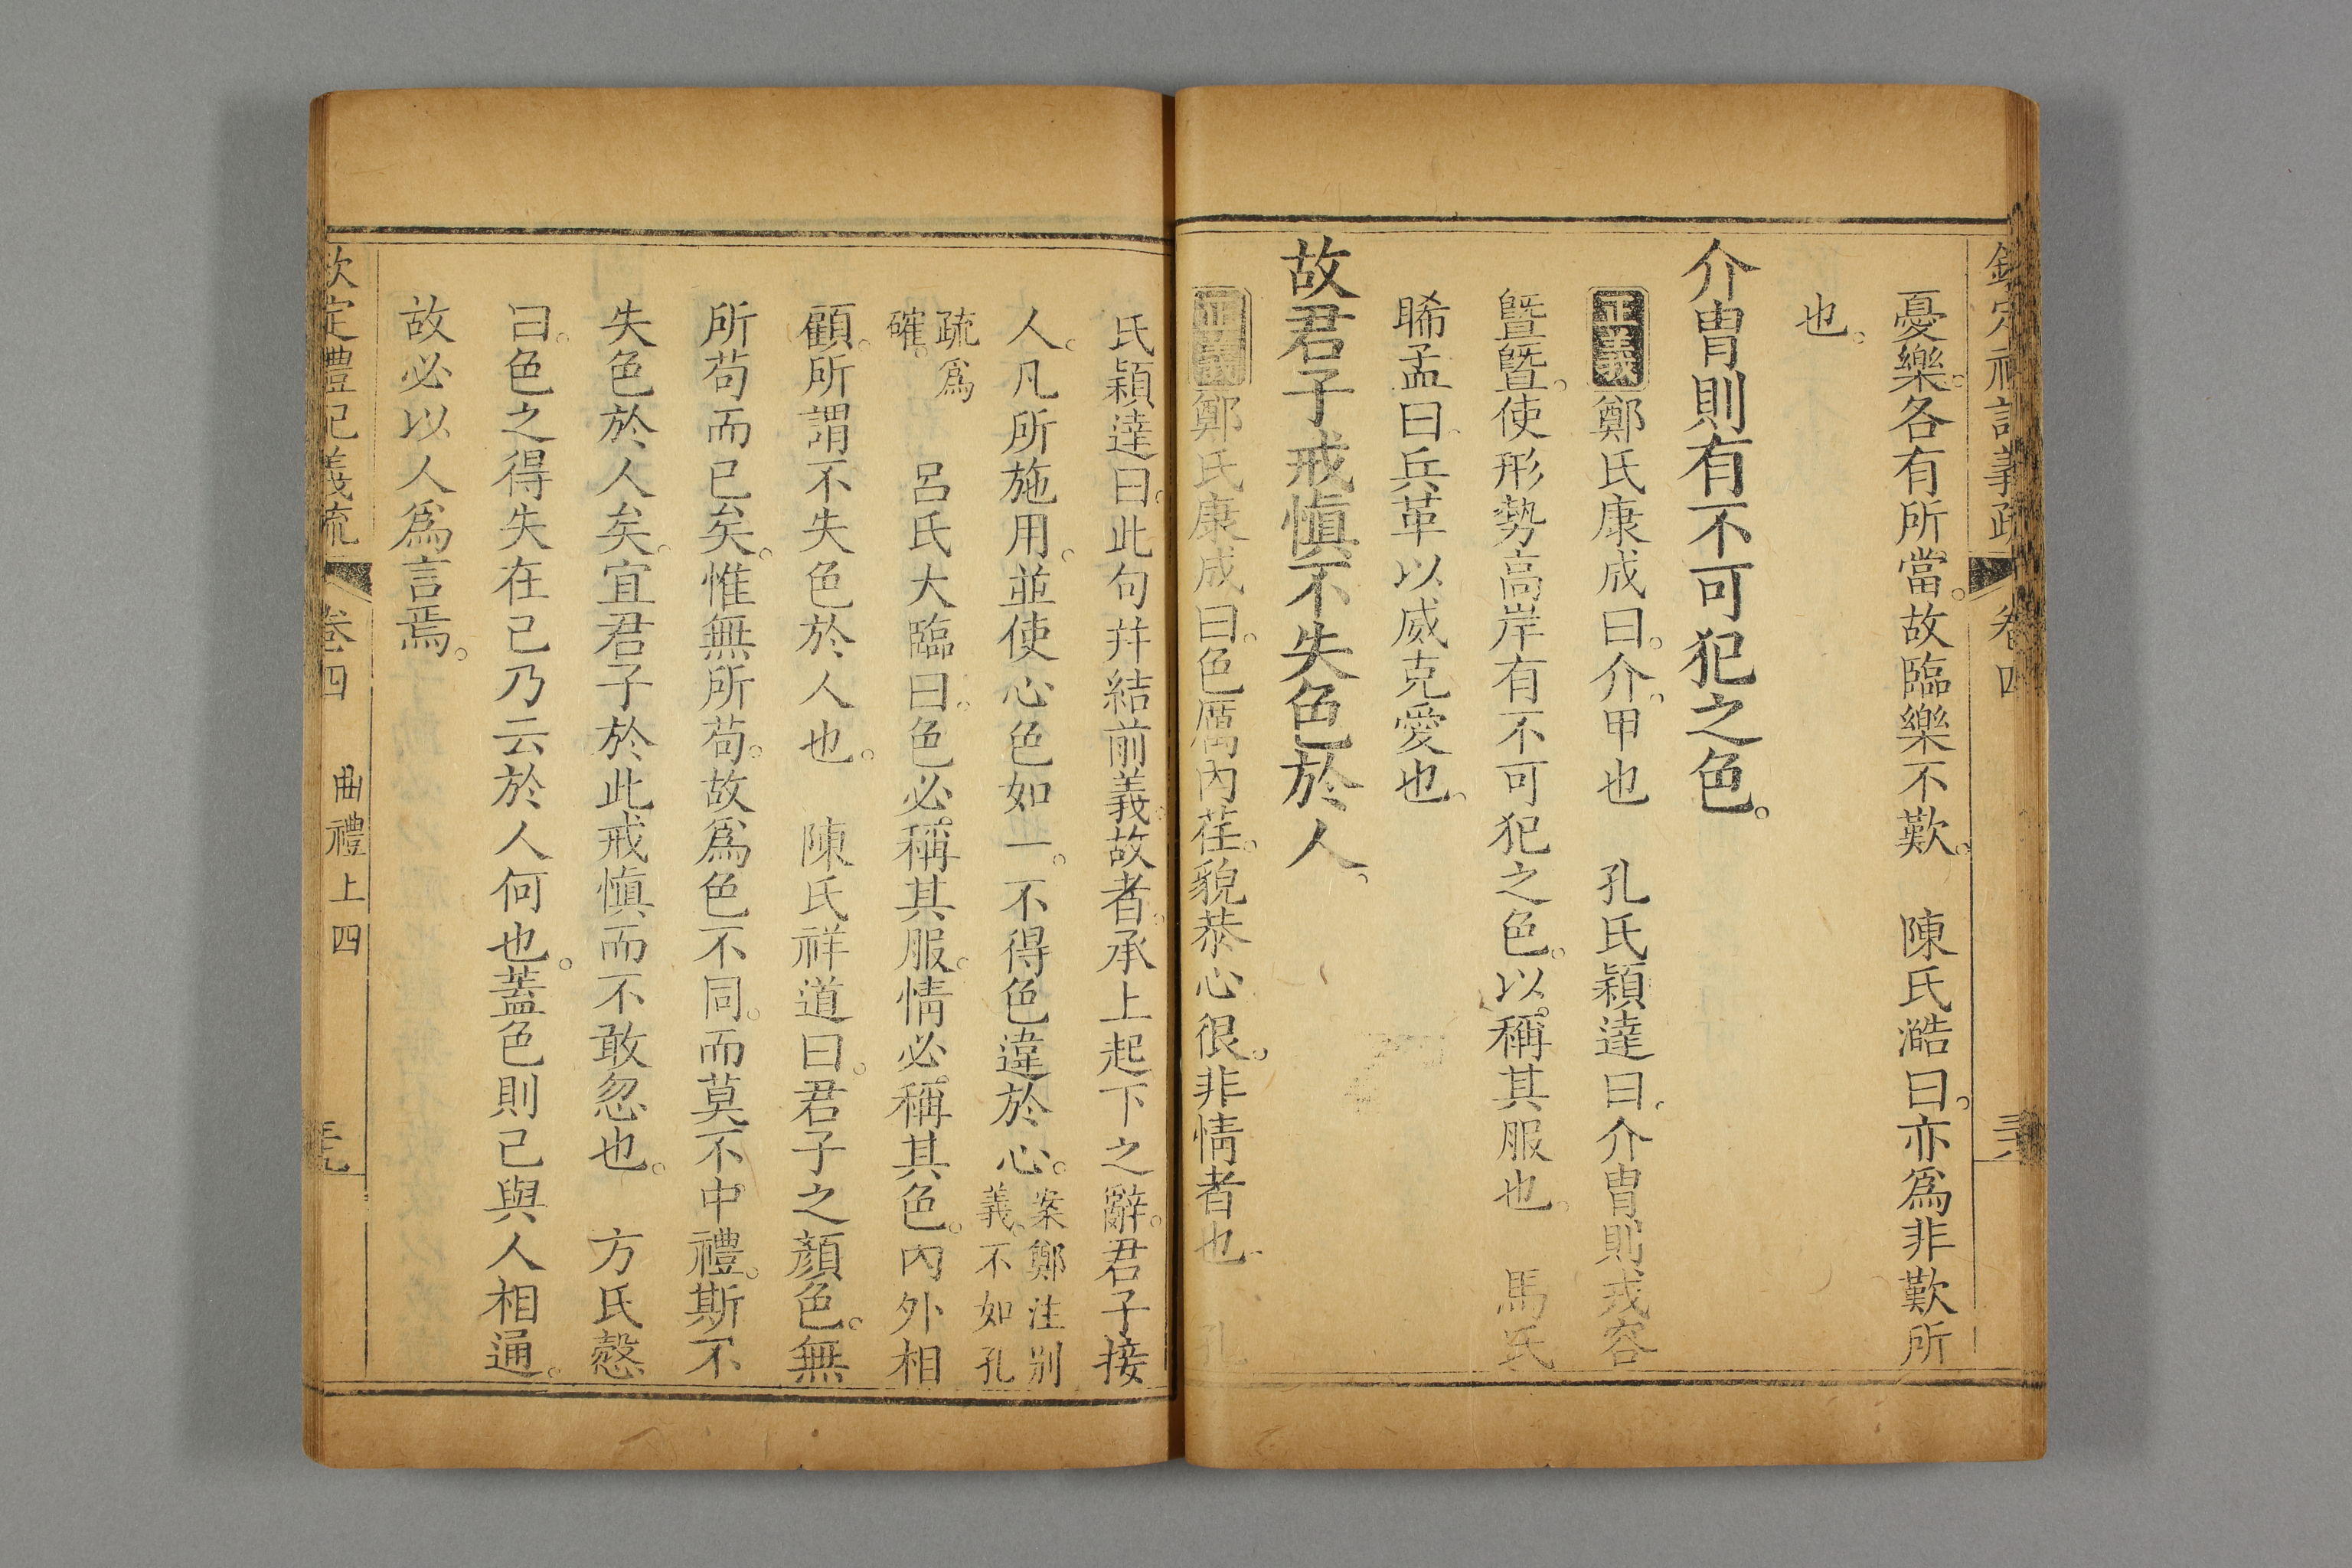 欽定禮記義疏 卷四
憂樂。各有所當。故臨樂不歎。 陳氏澔曰。亦爲非歎所
也。
介胄則有不可犯之色。
正義鄭氏康成曰。介。甲也 孔氏穎達曰。介胄則戎容
曁曁。使形勢高岸有不可犯之色。以稱其服也。 馬氏
睎孟曰。兵革以威克愛也。
故君子戒愼不失色於人。
正義鄭氏康成曰。色厲內荏。貌恭心很。非情者也 孔
氏穎達曰。此句幷結前義。故者。承上起下之辭。君子接
人。凡所施用。並使心色如一。不得色違於心。案鄭注别義。不如孔
疏爲確。 呂氏大臨曰。色必稱其服。情必稱其色。內外相
顧。所謂不失色於人也。 陳氏祥道曰。君子之顏色。無
所苟而已矣。惟無所苟。故爲色不同。而莫不中禮。斯不
失色於人矣。宜君子於此戒愼而不敢忽也。 方氏慤
曰。色之得失在已乃云於人何也。蓋色則已與人相通。
故必以人爲言焉。
欽定禮記義疏 卷四 曲禮上四